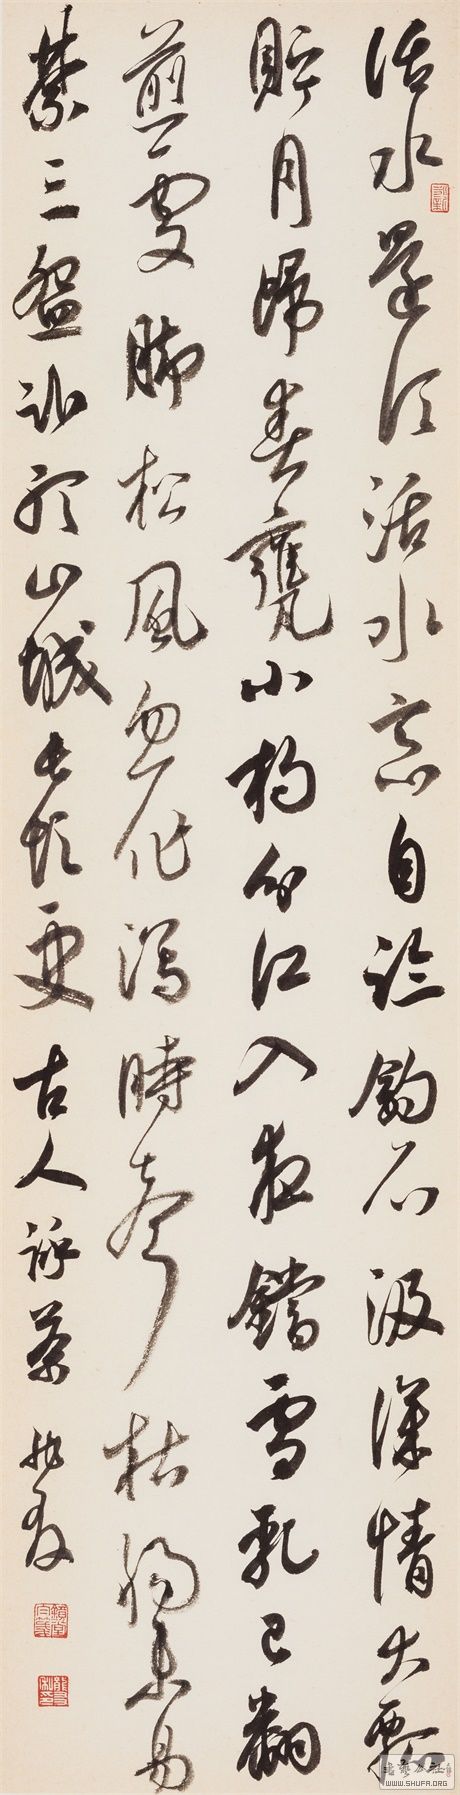 活水還須活水烹自臨釣石汲深情大瓢
貯月歸春甕小杓分江入夜鐺雪乳已翻
煎處腳松風忽作瀉時聲枯腸未易
禁三盌臥聽山城長短更 古人詠茶
WWW.SHUFA.ORG